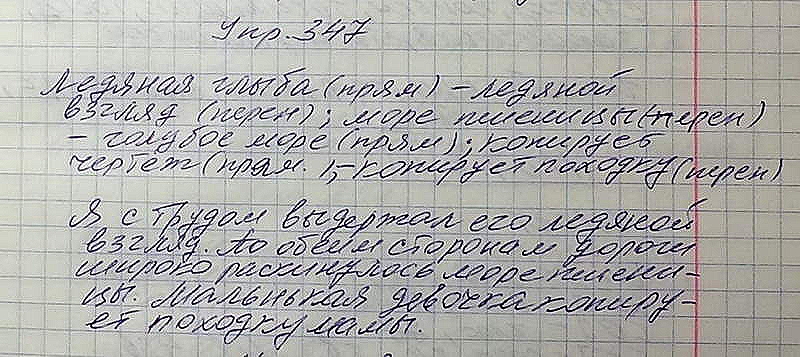 Упр. 347
Ледяная глыба (прям) – ледяной
взгляд (перен); море пшеницы (перен)
– голубое море (прям); копирует
чертеж (прям.), – копирует походку (перен)
Я с трудом выдержал его ледяной
взгляд. По обеим сторонам дороги
широко раскинулось море пшени-
цы. Маленькая девочка копиру-
ет походку мамы.